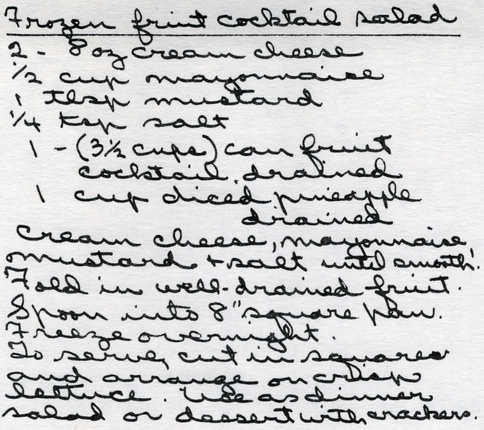 Frozen fruit cocktail salad
2 - 8 oz cream cheese
1/2 cup mayonnaise
1 tbsp mustard
1/4 tsp salt
1 - (3 1/2 cups) can fruit
cocktail, drained
1 cup diced pineapple
drained
Cream cheese, mayonnaise,
mustard + salt until smooth.
Fold in well-drained fruit.
Spoon into 8" square pan.
Freeze overnight.
To serve, cut in squares
and arrange on crisp
lettuce. Use as dinner
salad or dessert with crackers.